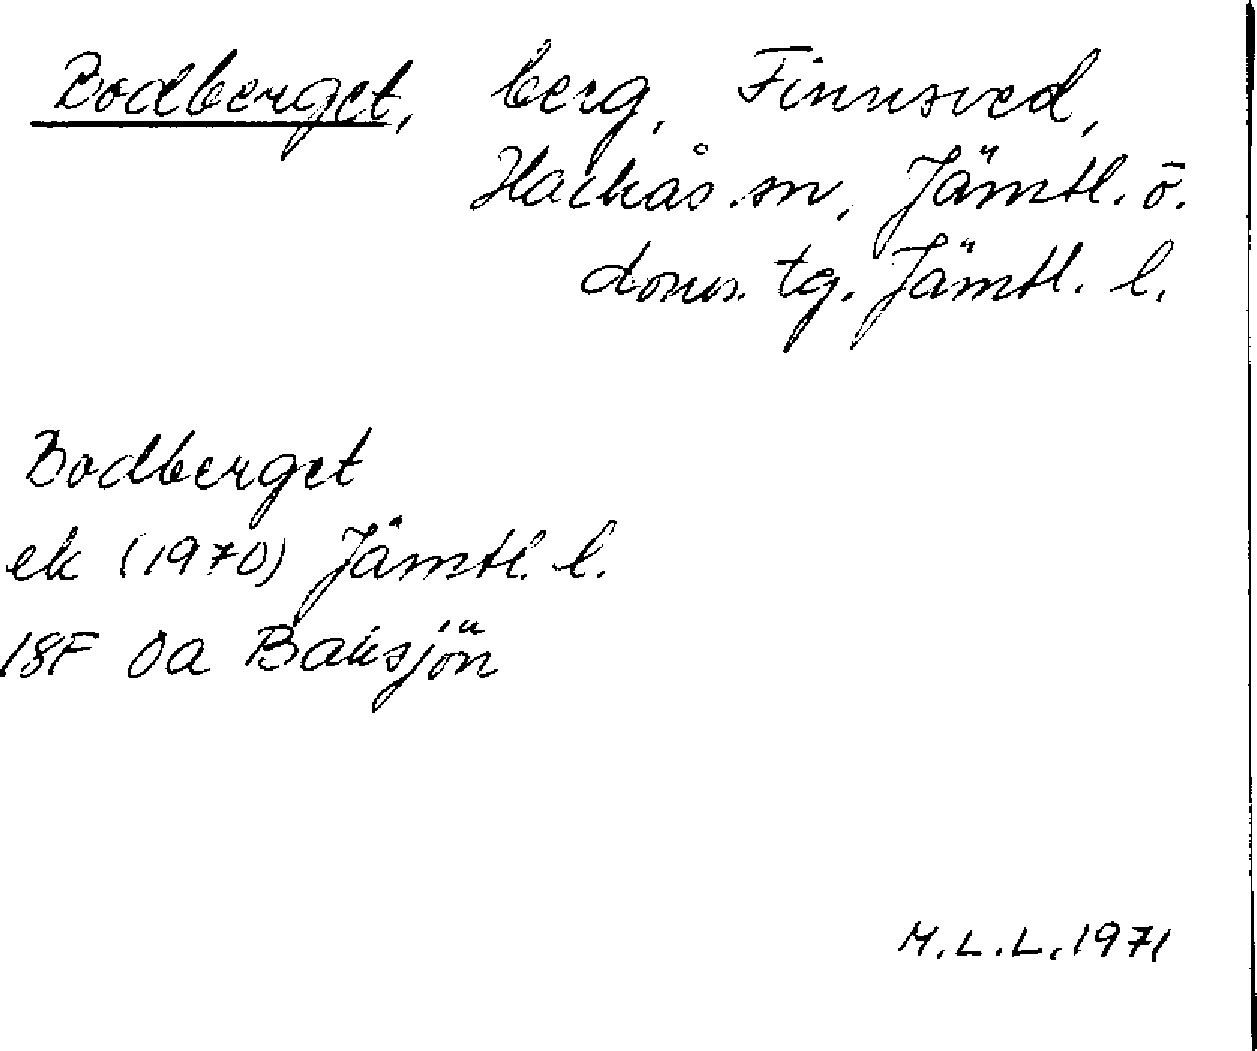 Bodberget, berg, Finnsved,
Hackås sn, Jämtl. ö.
doms. tg. Jämtl. l.
Bodberget
ek (1970) Jämtl. l.
18F 0a Baksjön
M.L.L. 1971